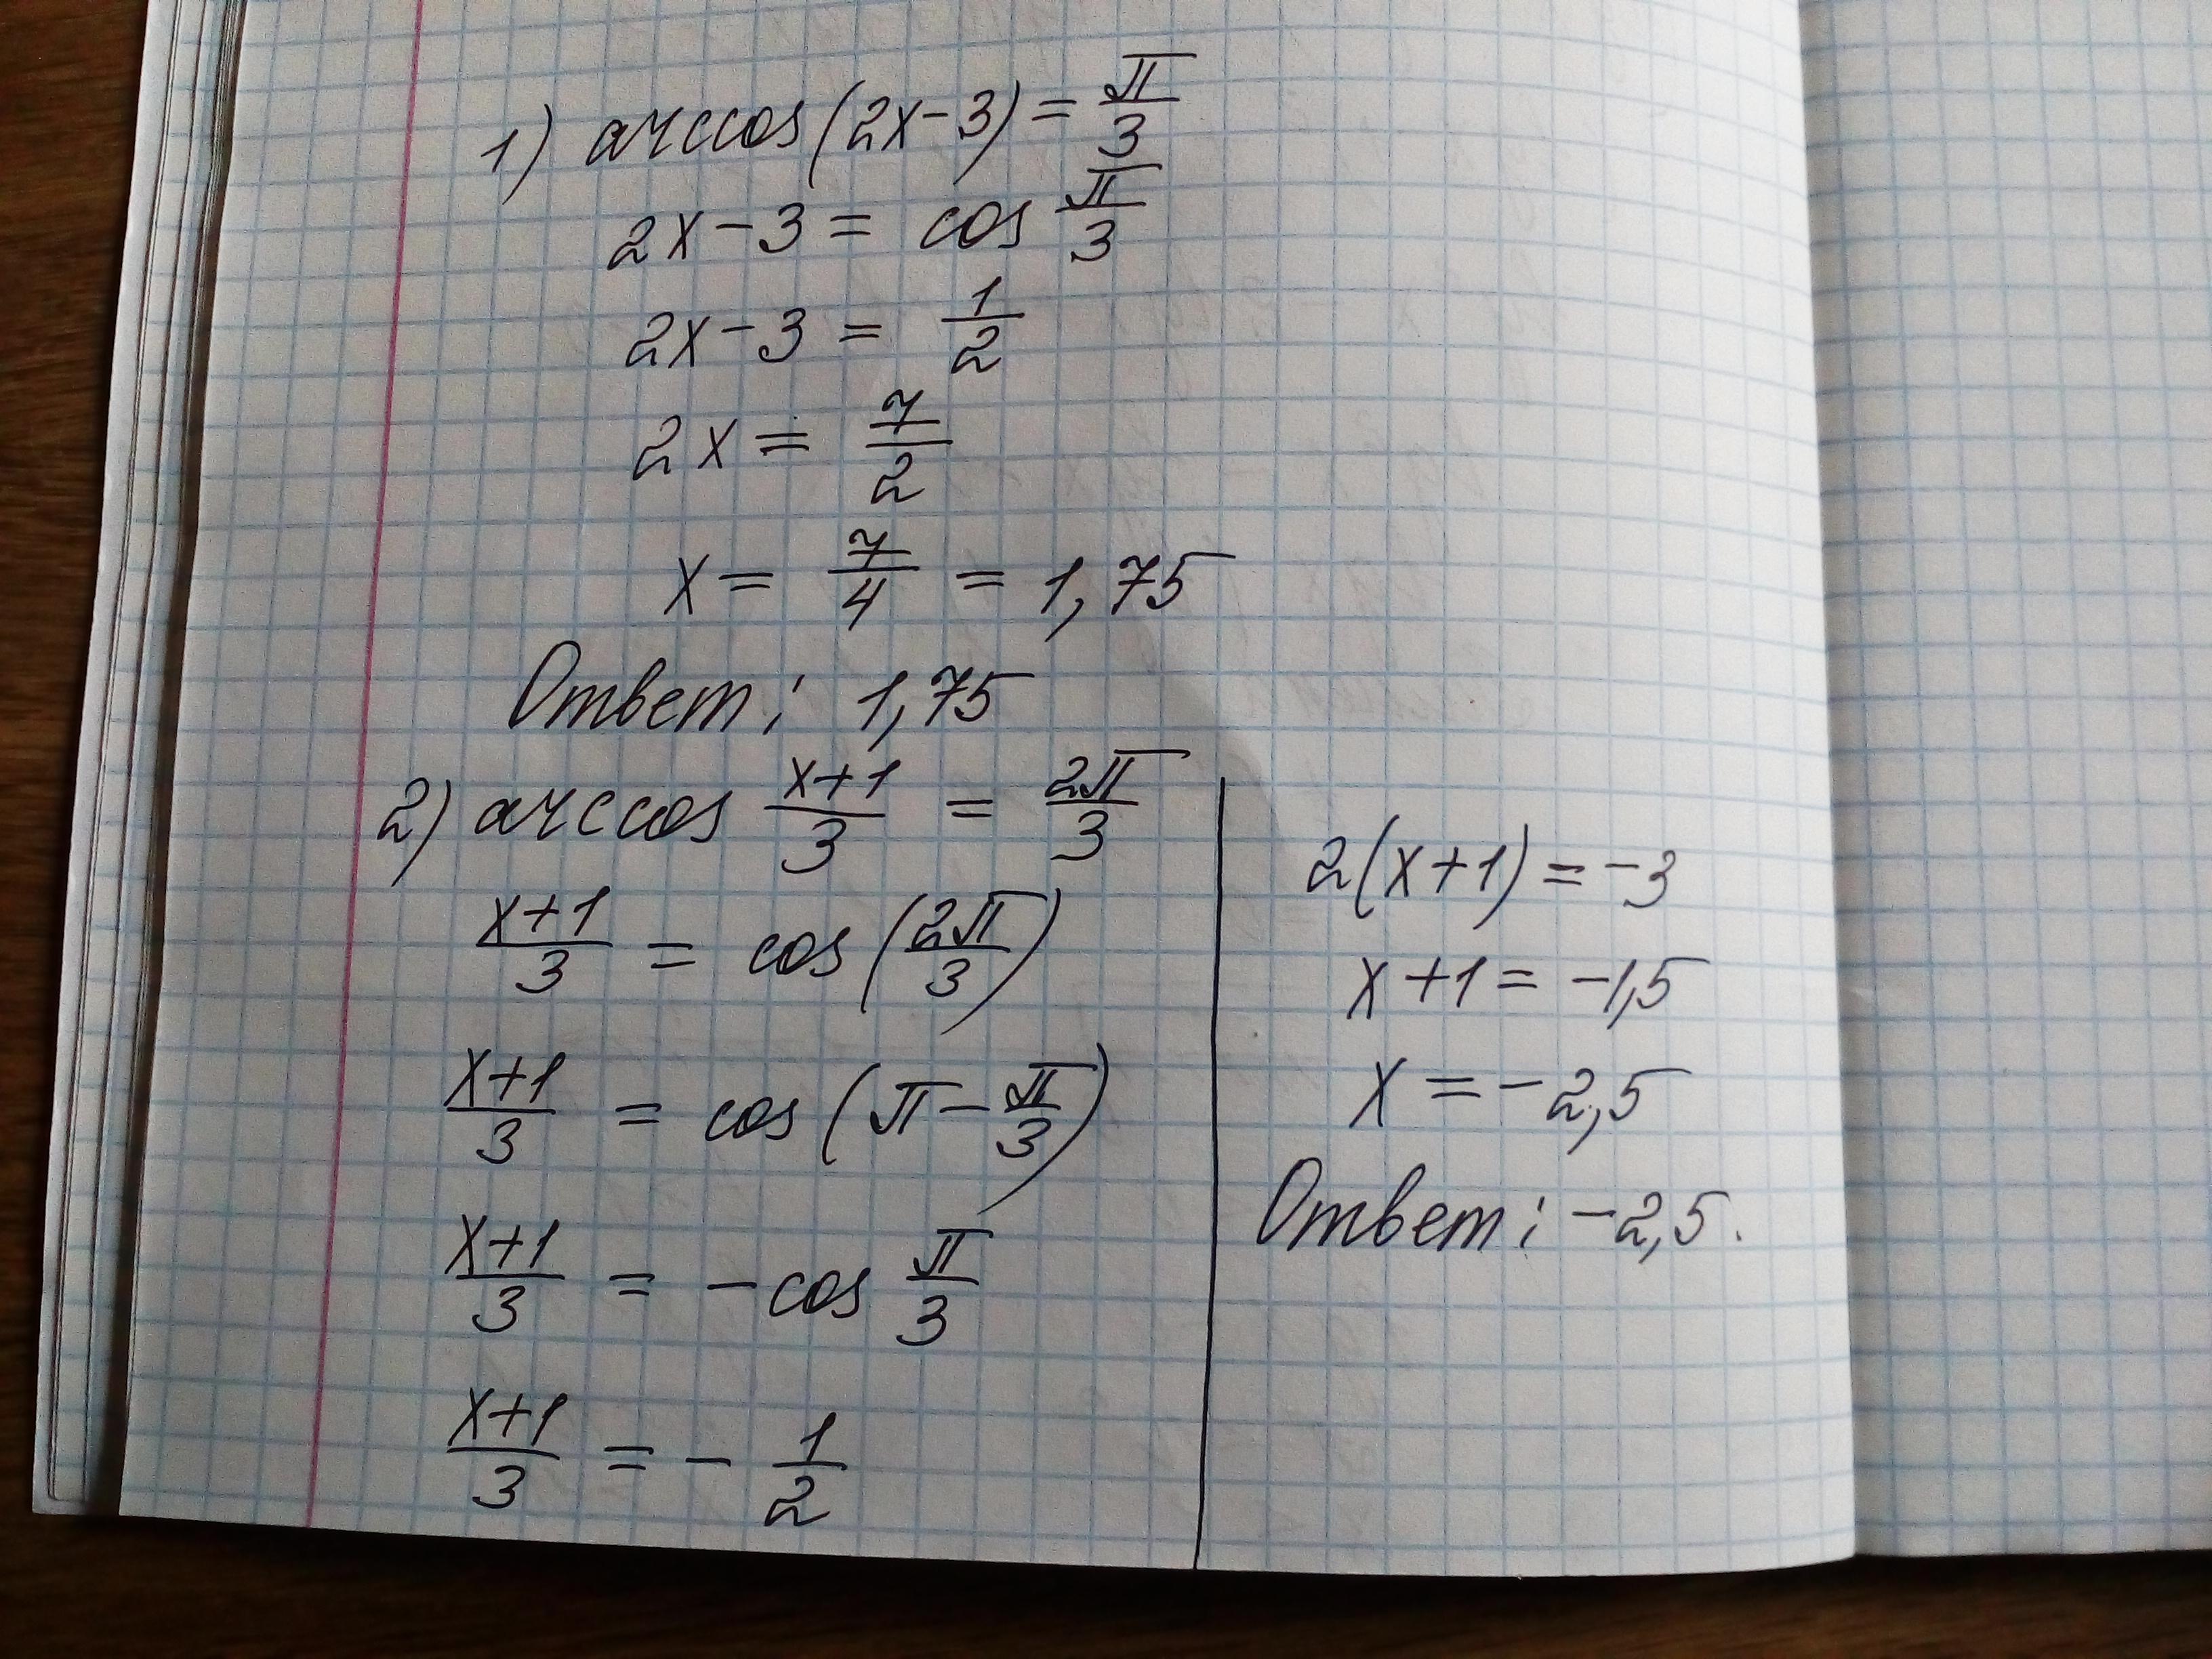 1) arccos(2x-3) = π/3
2x-3 = cos π/3
2x-3 = 1/2
2x = 7/2
x = 7/4 = 1,75
Ответ: 1,75
2) arccos (x+1)/3 = 2π/3
(x+1)/3 = cos(2π/3)
(x+1)/3 = cos(π - π/3)
(x+1)/3 = -cos π/3
(x+1)/3 = -1/2
2(x+1) = -3
x+1 = -1,5
x = -2,5
Ответ: -2,5.